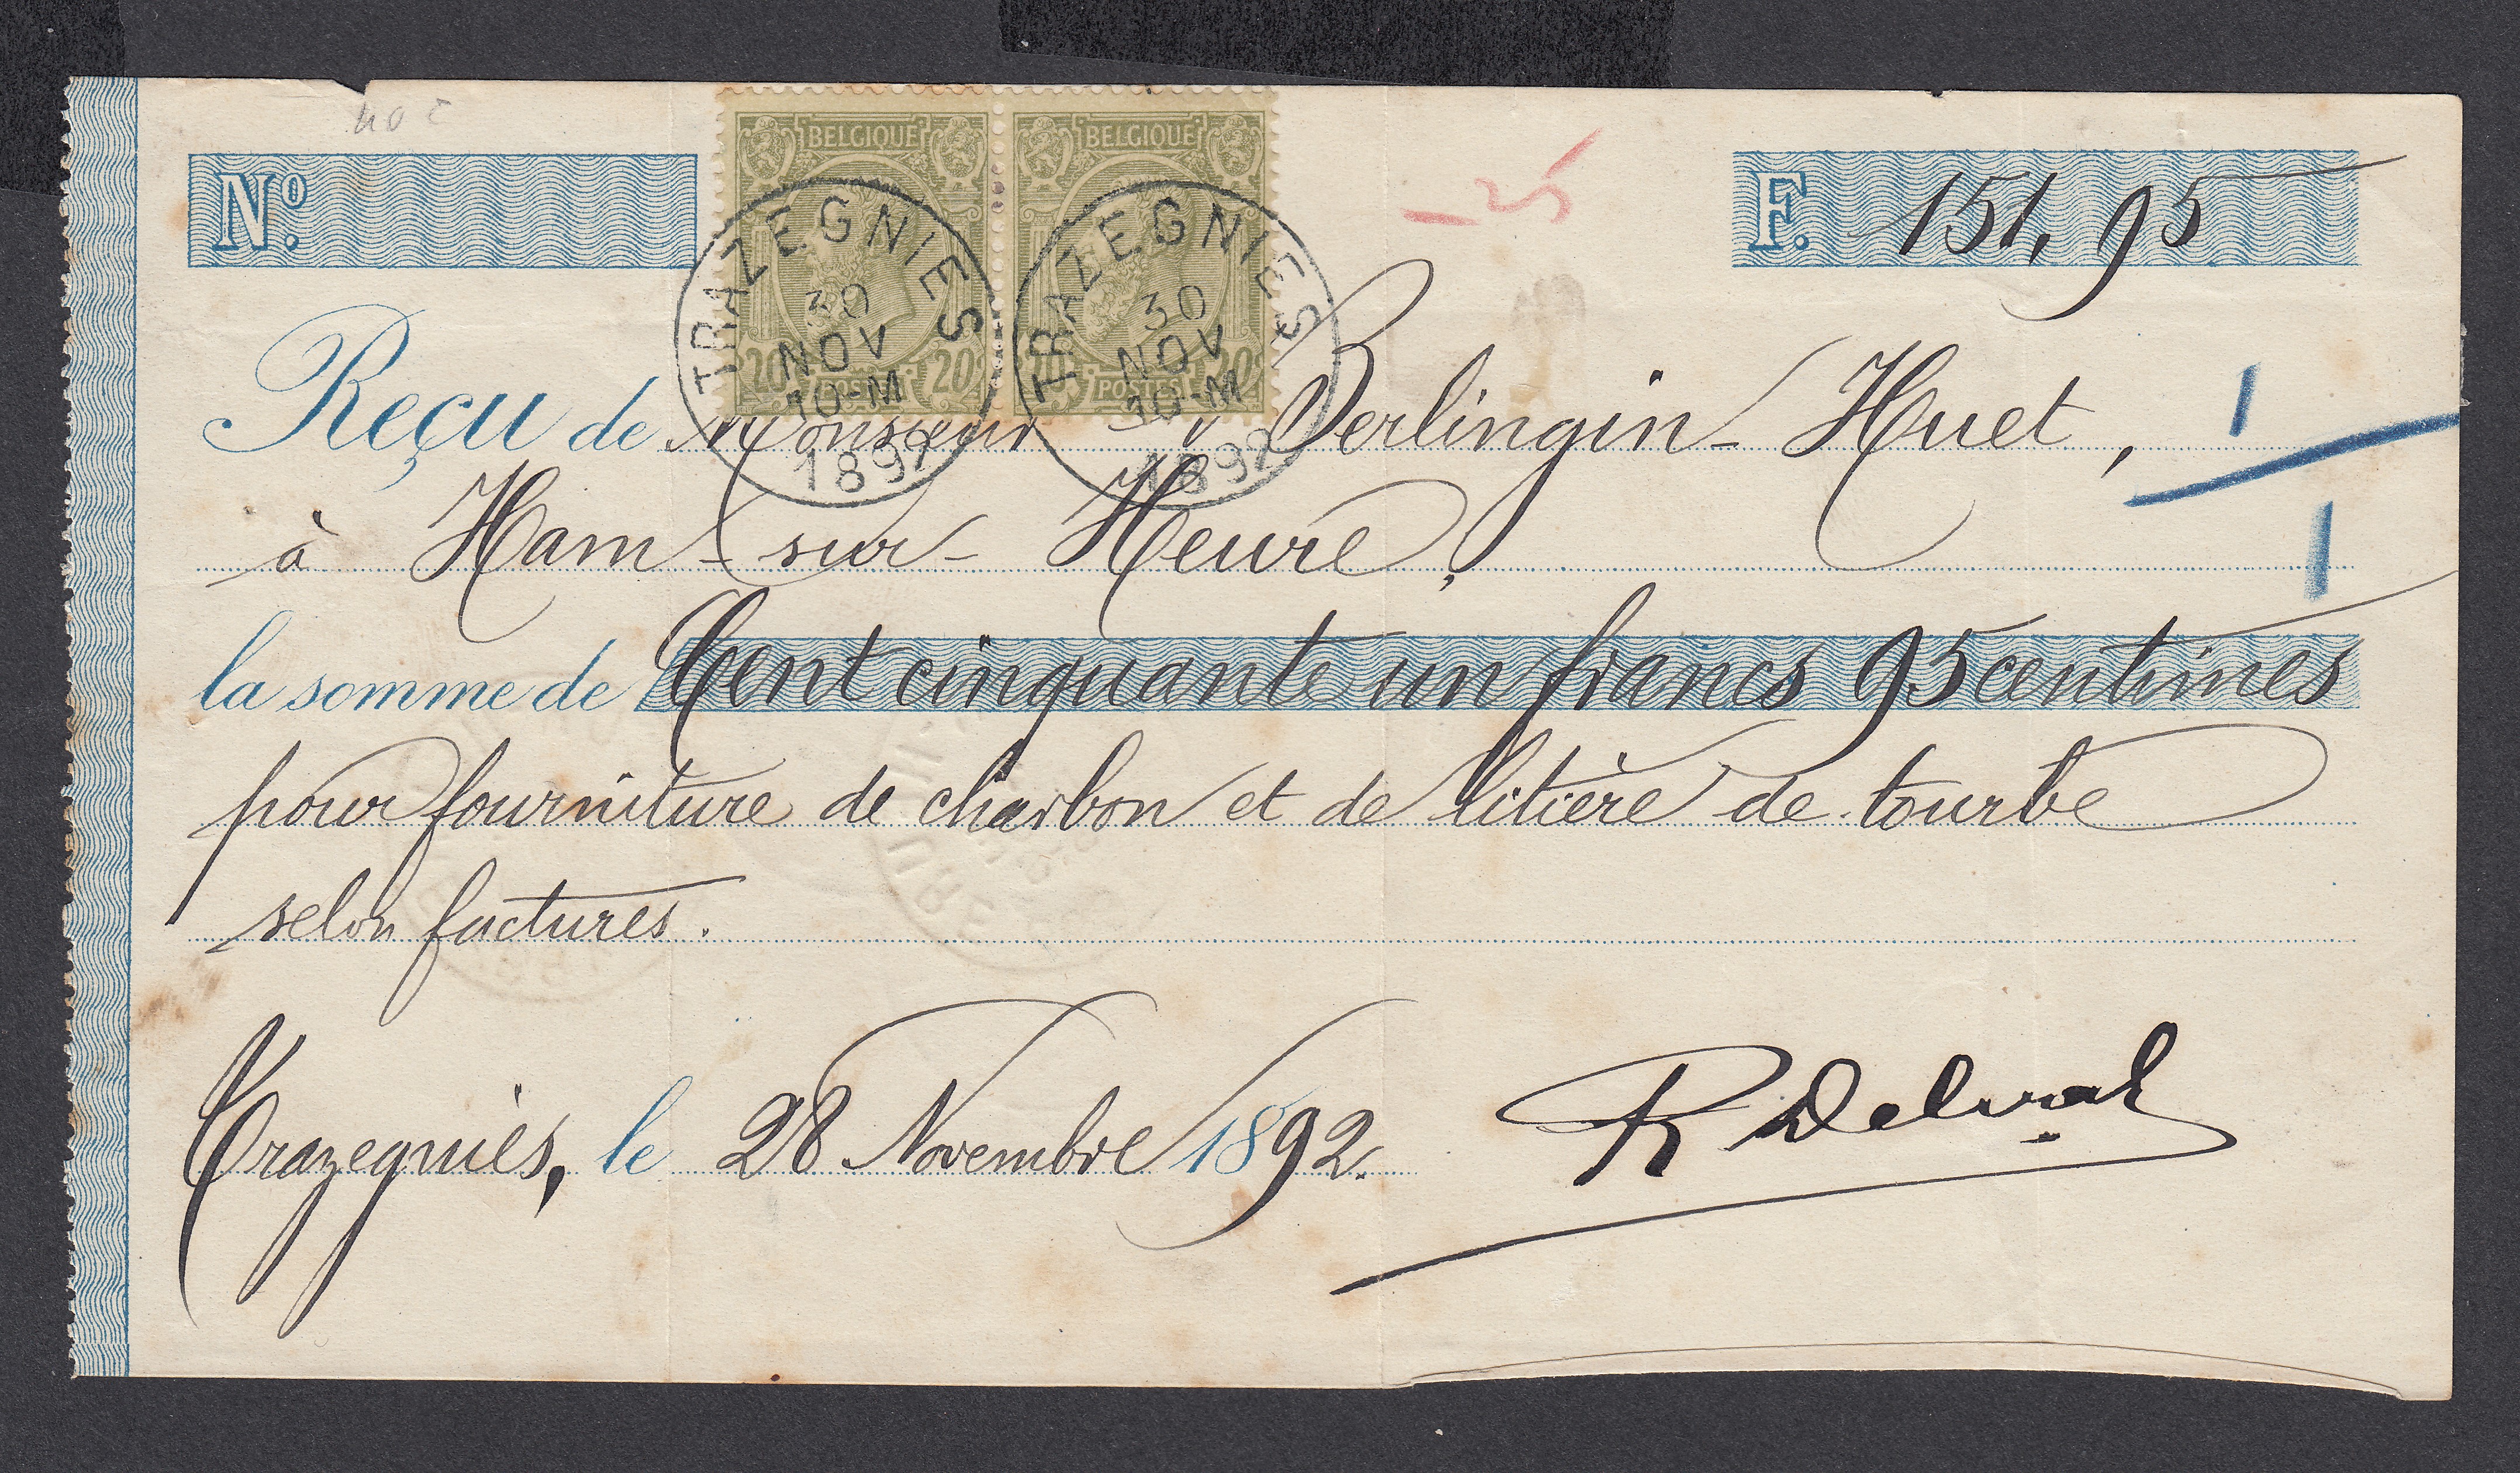 BELGIQUE BELGIQUE
-25
Nº. F. 151,95
TRAZEGNIES TRAZEGNIES
30 30
NOV NOV
10-M 10-M
1892 1892
20 POSTES 20 20 POSTES 20
Reçu de Monsieur Berlingin-Huet,
à Ham-sur-Heure,
la somme de Cent cinquante un francs 95 centimes
pour fourniture de charbon et de litière de tourbe
selon factures.
Trazegnies, le 28 Novembre 1892.
R Delval
1
1